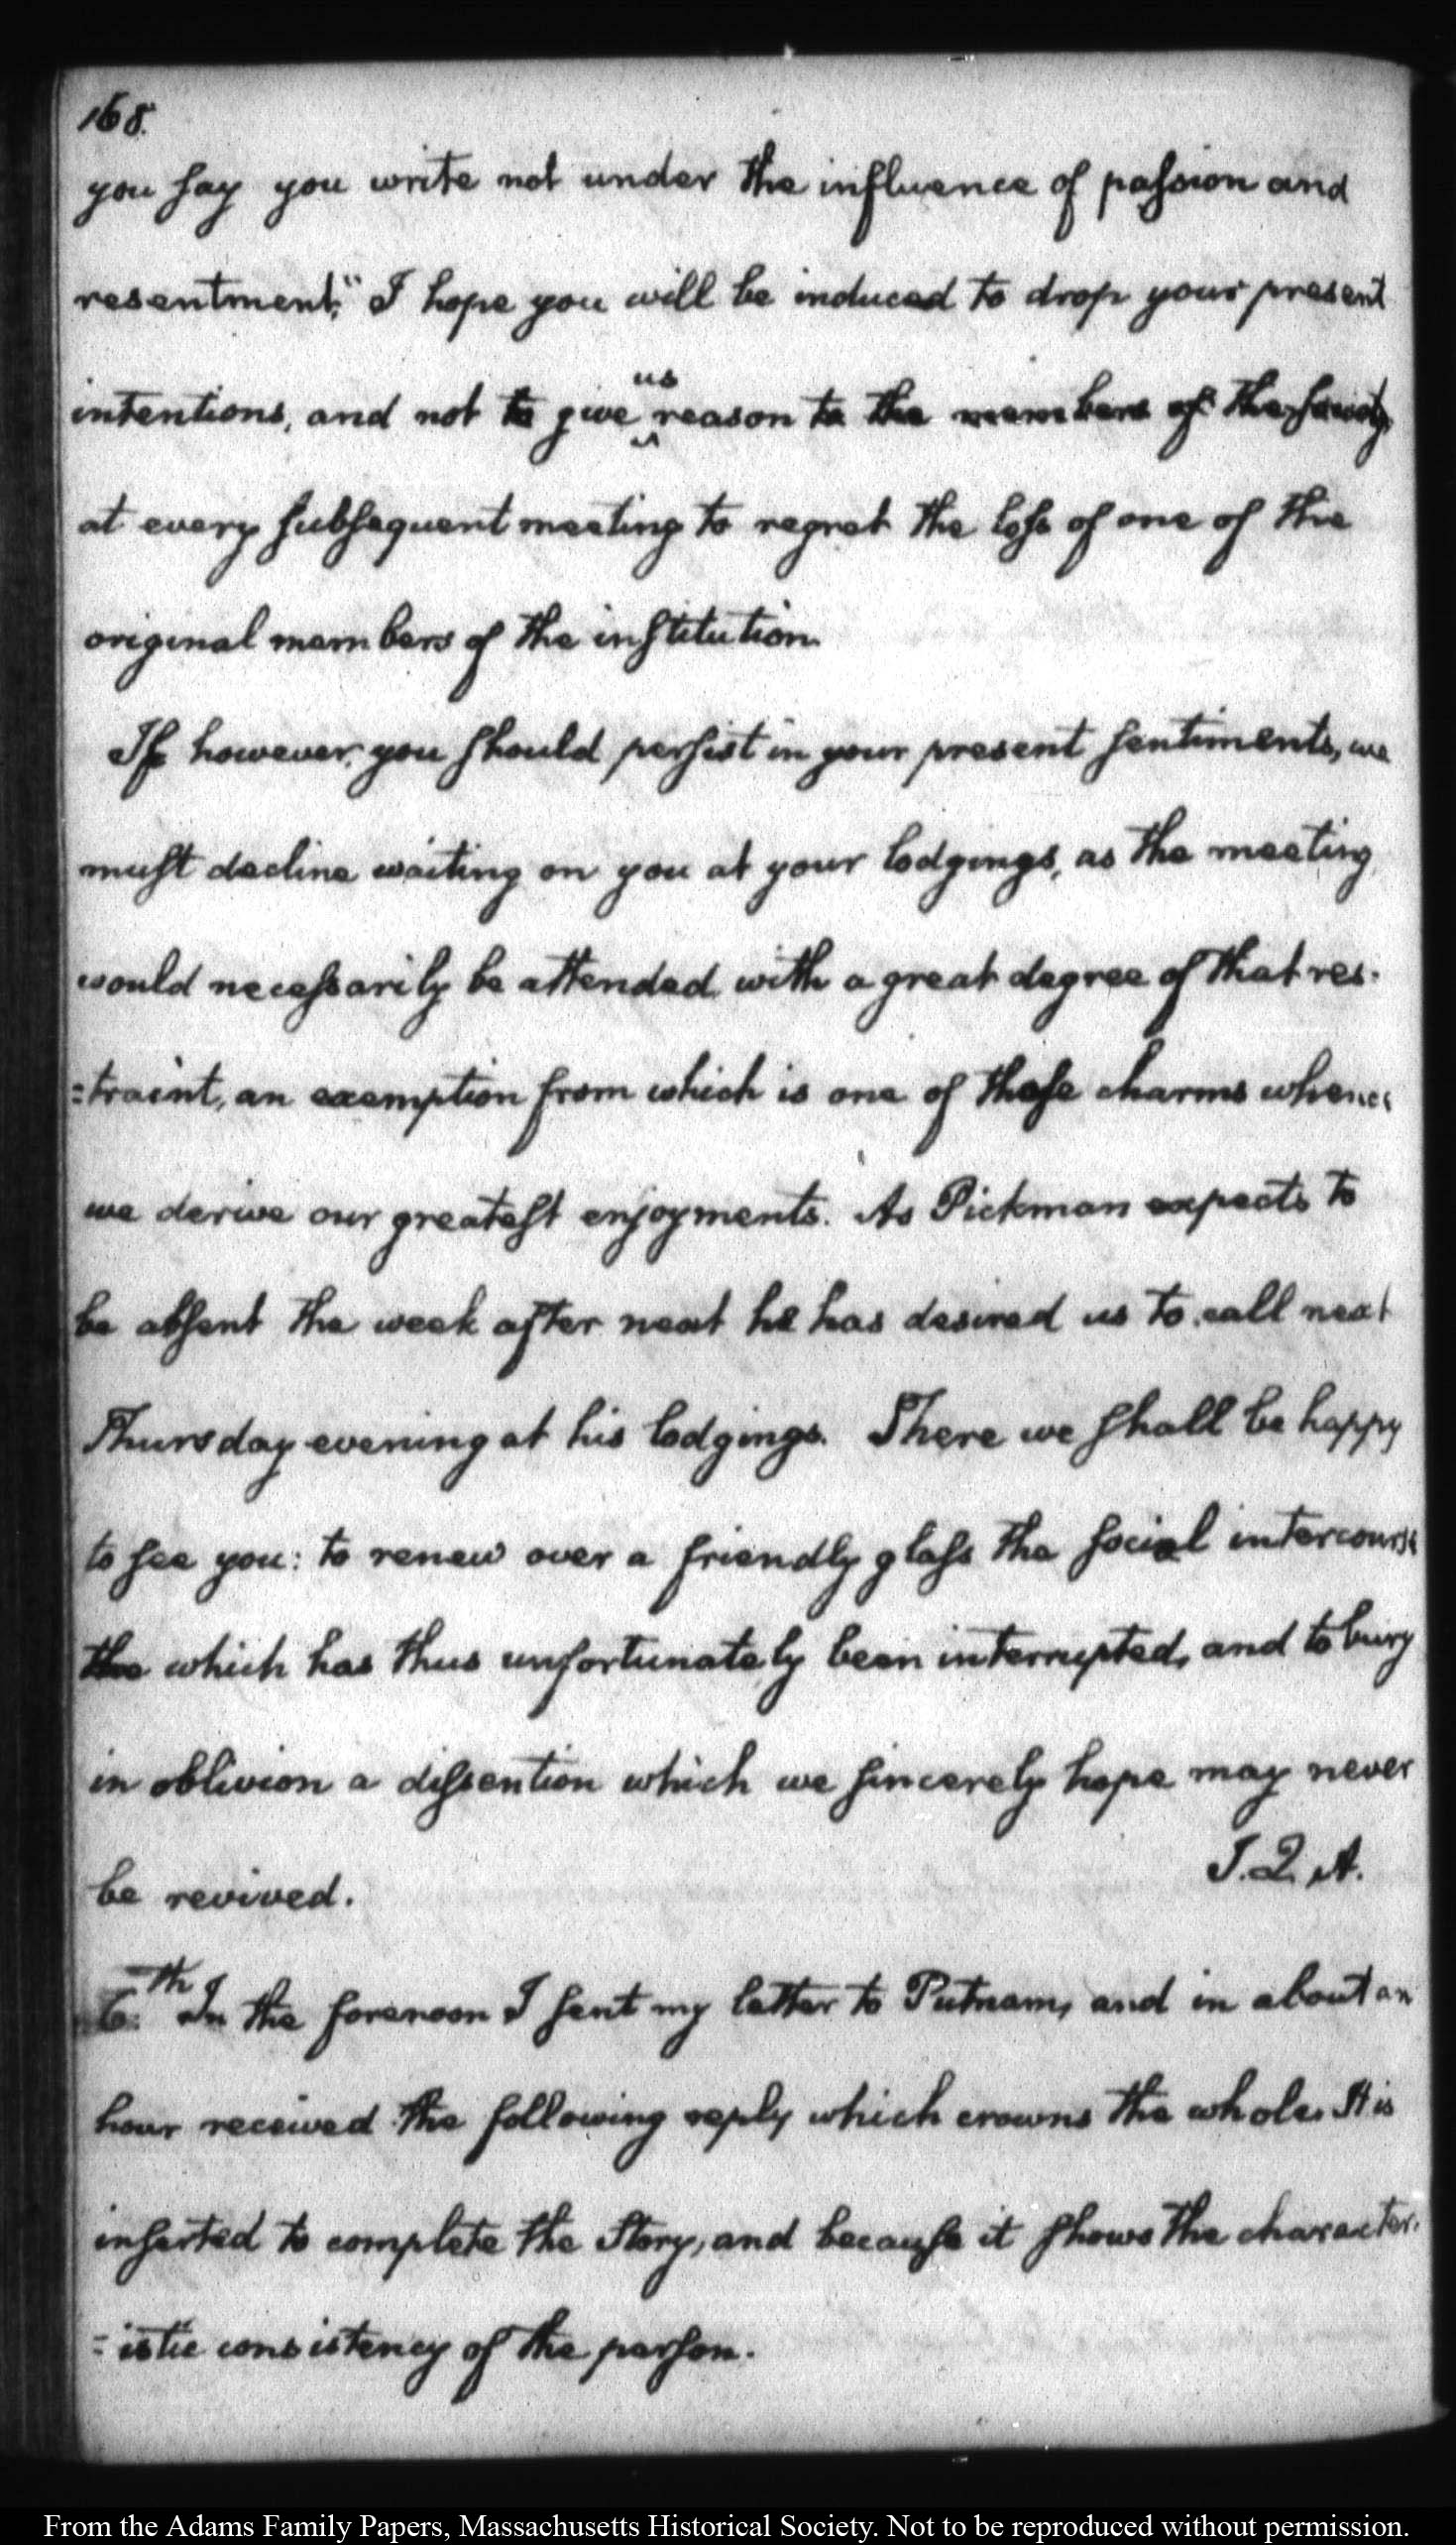 168.
you say you write not under the influence of passion and
resentment," I hope you will be induced to drop your present
intentions, and not to give us reason to the members of the society,
at every subsequent meeting to regret the loss of one of the
original members of the institution.
If however, you should persist in your present sentiments, we
must decline waiting on you at your lodgings, as the meeting
would necessarily be attended with a great degree of that res-
=traint, an exemption from which is one of those charms whence
we derive our greatest enjoyments. As Pickman expects to
be absent the week after next he has desired us to call next
Thursday evening at his lodgings. There we shall be happy
to see you: to renew over a friendly glass the social intercourse
the which has thus unfortunately been interrupted, and to bury
in oblivion a dissention which we sincerely hope may never
be revived.
J. Q. A.
6.th In the forenoon I sent my letter to Putnam, and in about an
hour received the following reply which crowns the whole. It is
inserted to complete the Story, and because it shows the character-
=istic consistency of the person.
From the Adams Family Papers, Massachusetts Historical Society. Not to be reproduced without permission.